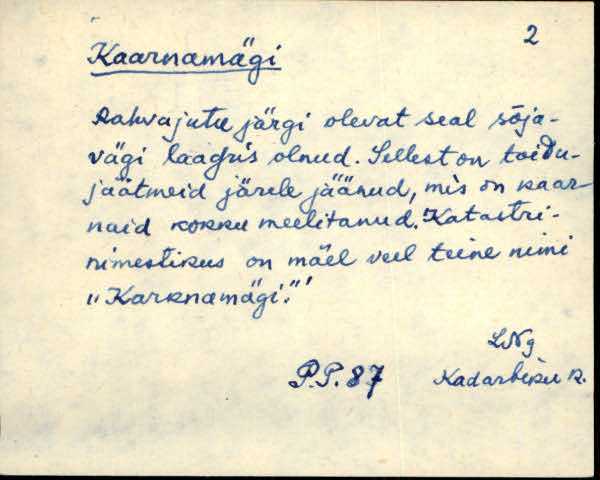 2
Kaarnamägi
Rahvajutu järgi olevat seal sõja-
vägi laagris olnud. Sellest on toidu-
jäätmeid järele jäänud, mis on kaar-
naid kokku meelitanud. Katastri-
nimestikus on mäel veel teine nimi
"Karknamägi."
LNg
P.P. 87 Kadarbiku k.